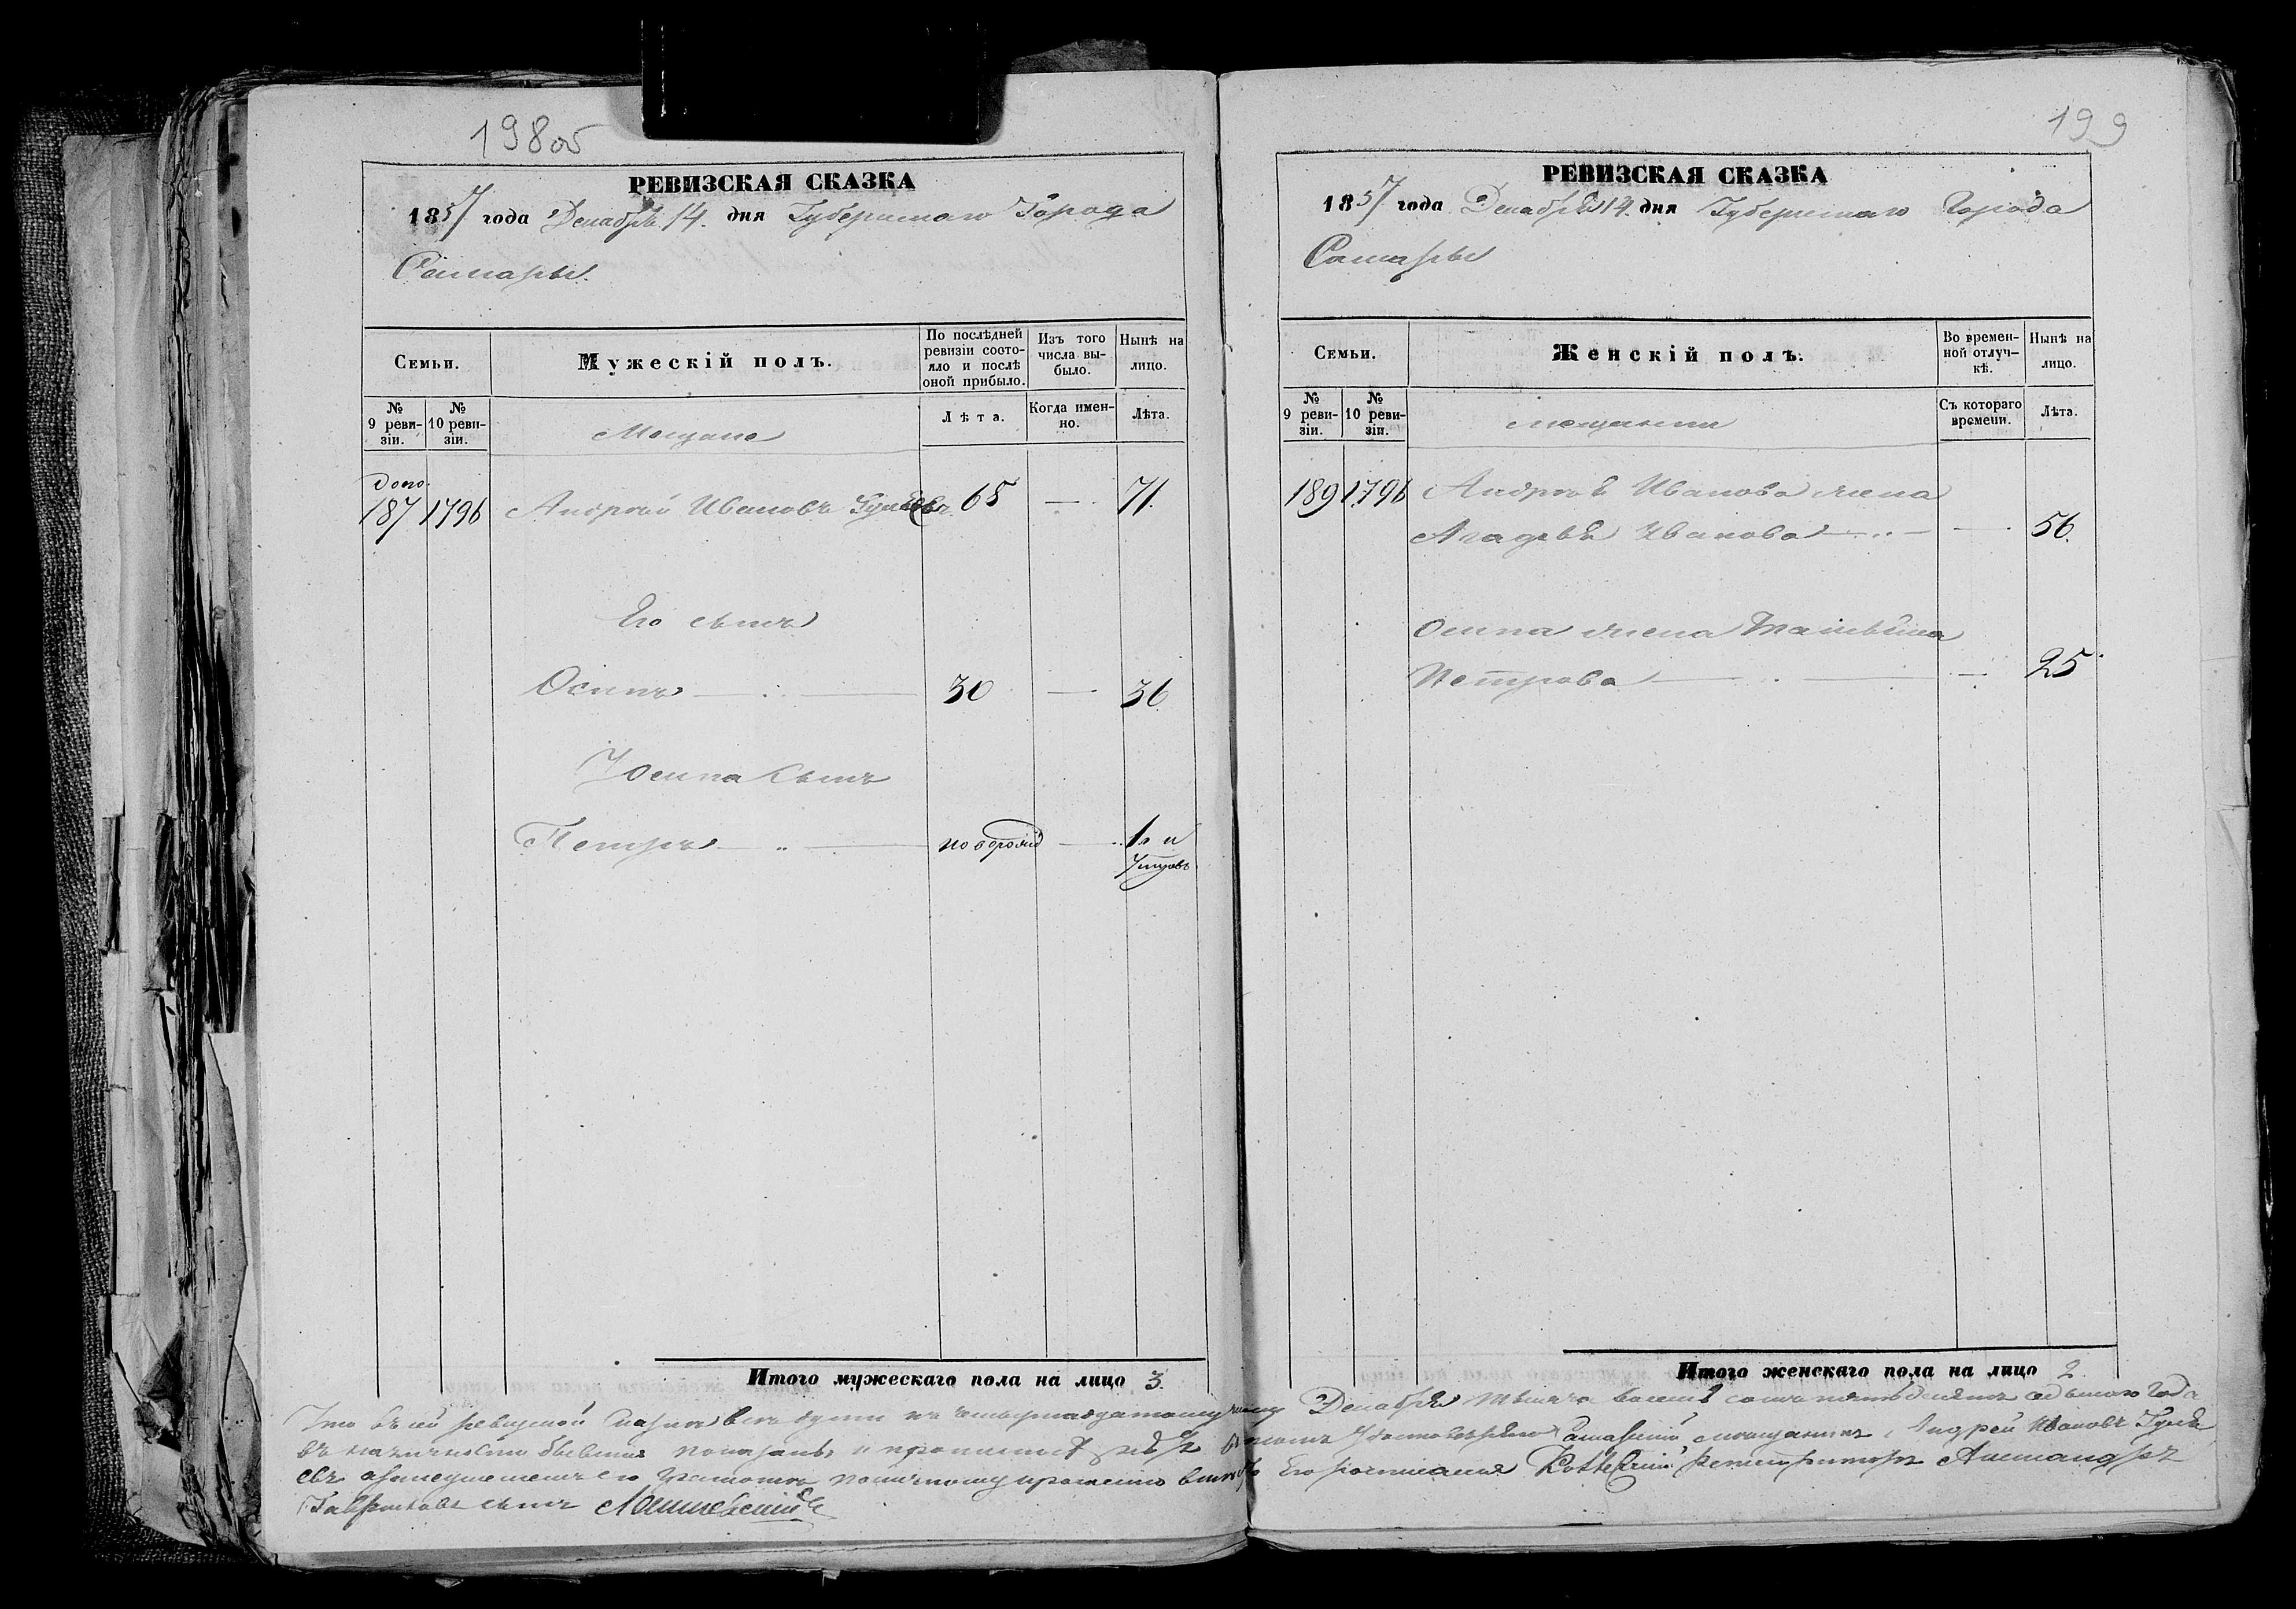 198об
РЕВИЗСКАЯ СКАЗКА
1857 года Декабря 14. дня Губернскаго Города
Самары.
Семьи.
Мужескій полъ.
По послѣдней ревизіи состо-
яло и послѣ оной прибыло.
Изъ того числа вы-
было.
Нынѣ на лицо.
№ 9 реви-
зіи.
№ 10 реви-
зіи.
Мещане
Лѣта.
Когда имен-
но.
Лѣта.
допо.
187 1796 Андрей Ивановъ 65 — 71.
Его сынъ
Осипъ 30 — 36
Осипа сынъ
Петръ новорожд — 1 и
7 мѣсяцовъ
Итого мужескаго пола на лицо 3.
199
РЕВИЗСКАЯ СКАЗКА
1857 года Декабря 14. дня Губернскаго Города
Самары
Семьи.
Женскій полъ.
Во времен-
ной отлуч-
кѣ.
Нынѣ на лицо.
№ 9 реви-
зіи.
№ 10 реви-
зіи.
мещанки
Съ котораго времени.
Лѣта.
189 1796 Андрея Иванова жена
Агафья Иванова — 56.
Осипа жена Татьяна
Петрова — 25
Итого женскаго пола на лицо 2.
Что въ сей ревизской сказкѣ всѣ души къ четырнадцатому числу Декабря тысяча восемь сотъ пятьдесятъ седьмого года
въ наличности бывшія показаны и Самарскій мещанинъ Андрей Ивановъ
его Коллежскій Регистраторъ Александръ
Гавриловъ сынъ